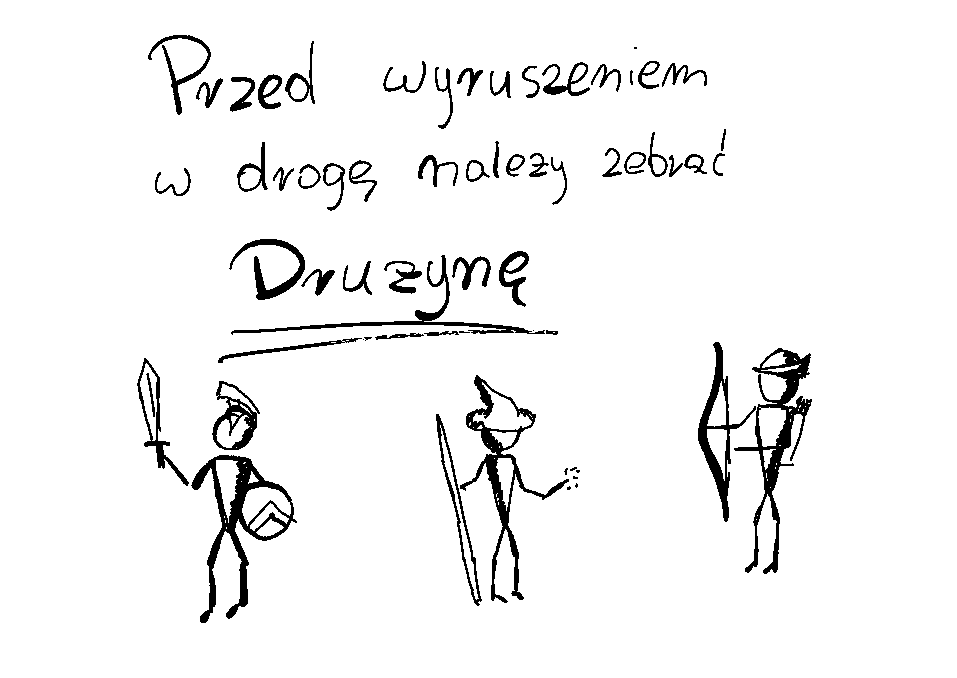 Przed wyruszeniem
w drogę nalezy zebrać
Druzynę